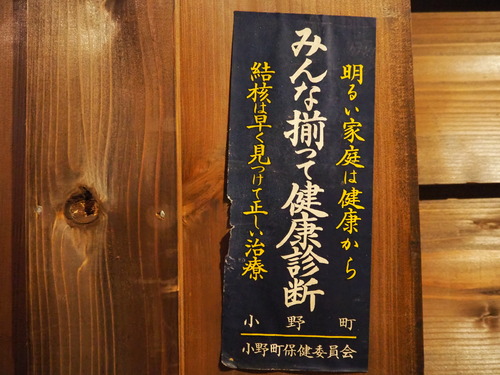 明るい家庭は健康から
みんな揃って健康診断
結核は早く見つけて正しい治療
小野町
小野町保健委員会